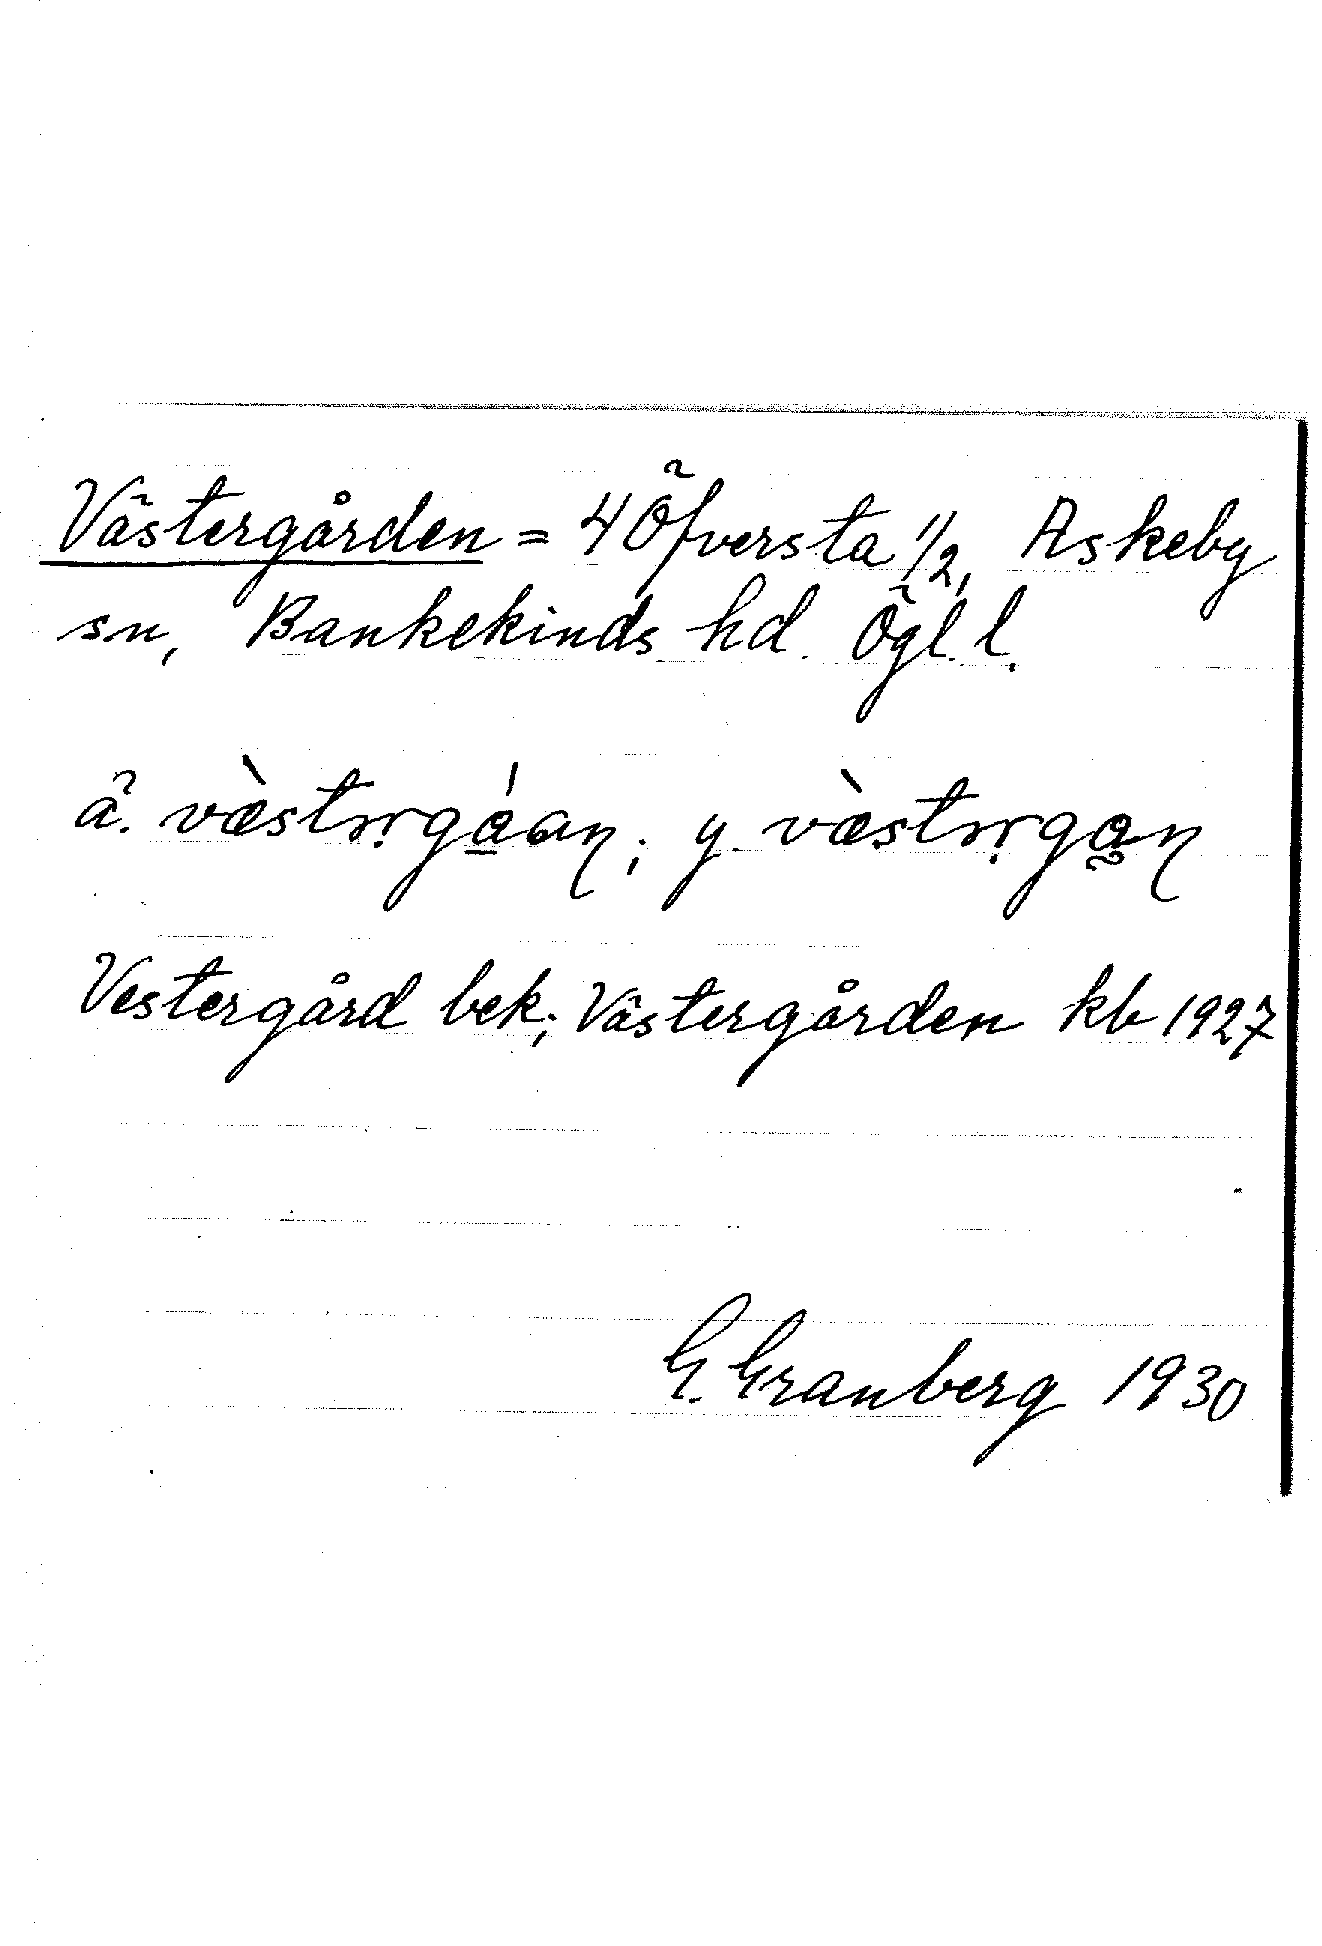 Västergården = 4 Öfversta 1/2, Askeby
sn, Bankekinds hd. Ögl. l.
ä. væ̀stərgáan; y. væ̀stərgan
Vestergård bek; Västergården kb 1927
G. Granberg 1930